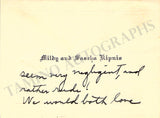 Mildy and Sascha Kipnis
seem very negligent and
rather rude!
We would both love
TAMINO AUTOGRAPHS